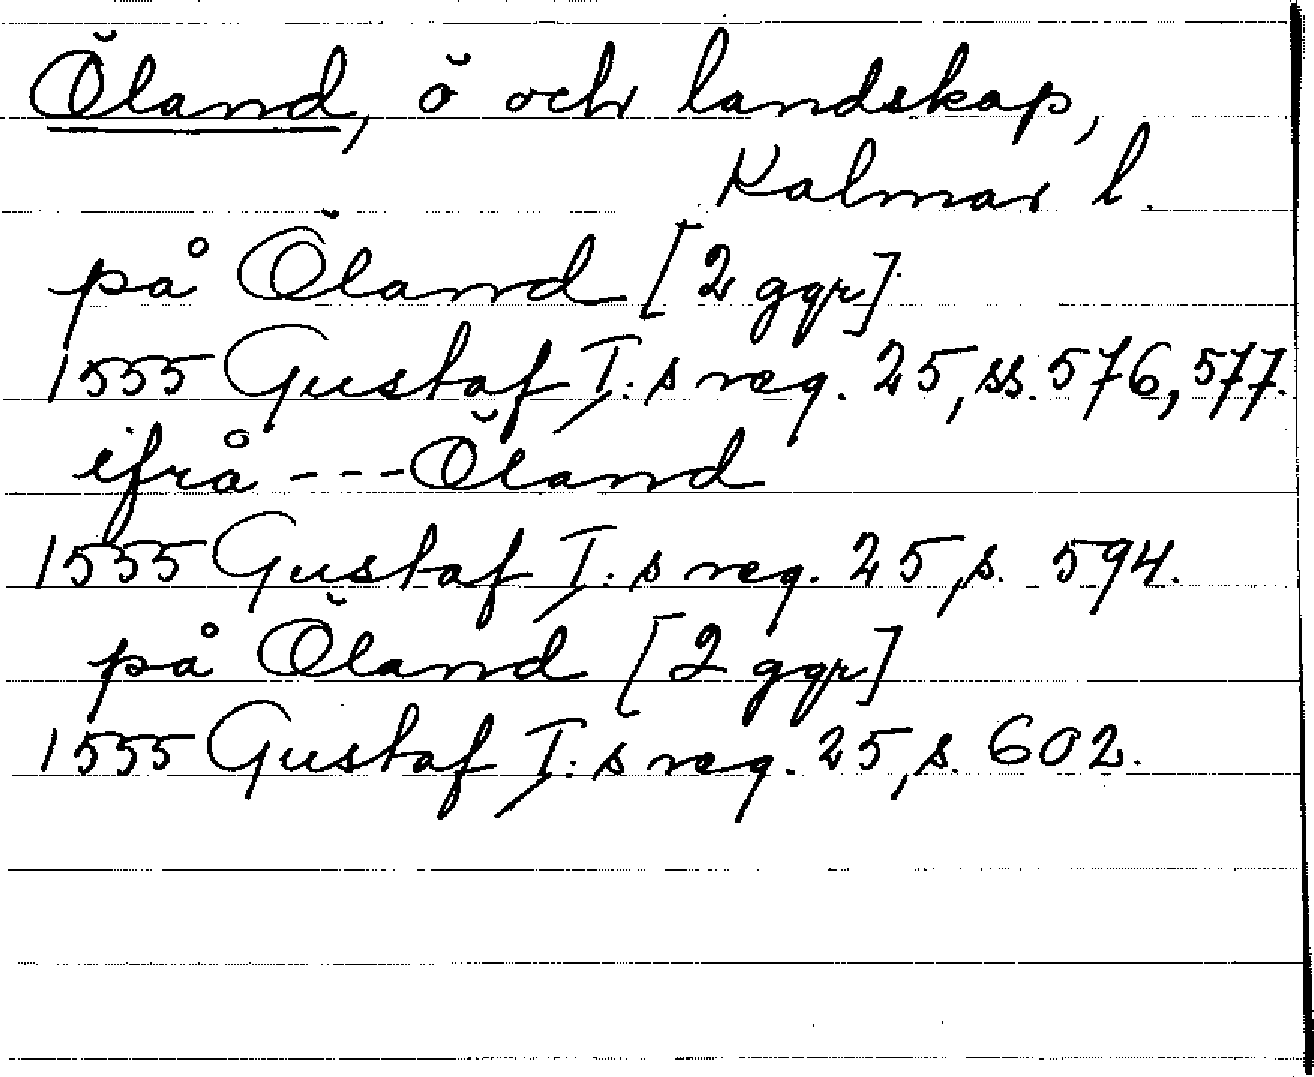 Öland, ö och landskap,
Kalmar l.
på Öland [2 ggr]
1555 Gustaf I:s reg. 25, ss. 576, 577.
ifrå --- Öland
1555 Gustaf I:s reg. 25, s. 594.
på Öland [2 ggr]
1555 Gustaf I:s reg. 25, s. 602.